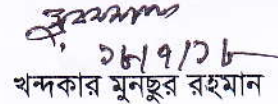 ১৮/৭/১৮
খন্দকার মুনছুর রহমান